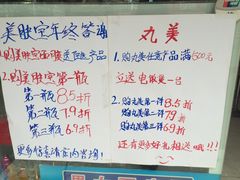 美肤宝年终答谢
1.购美肤宝面膜送正品产品
2.购美肤宝第一瓶
第一瓶 8.5折
第二瓶 7.9折
第三瓶 6.9折
更多信息请店内咨询!
丸美
1.购丸美任意产品满600元
立送 电饭煲一台
2.购丸美第一件 8.5折
购丸美第二件 7.9折
购丸美第三件 6.9折
还有更多好礼相送哦!!!